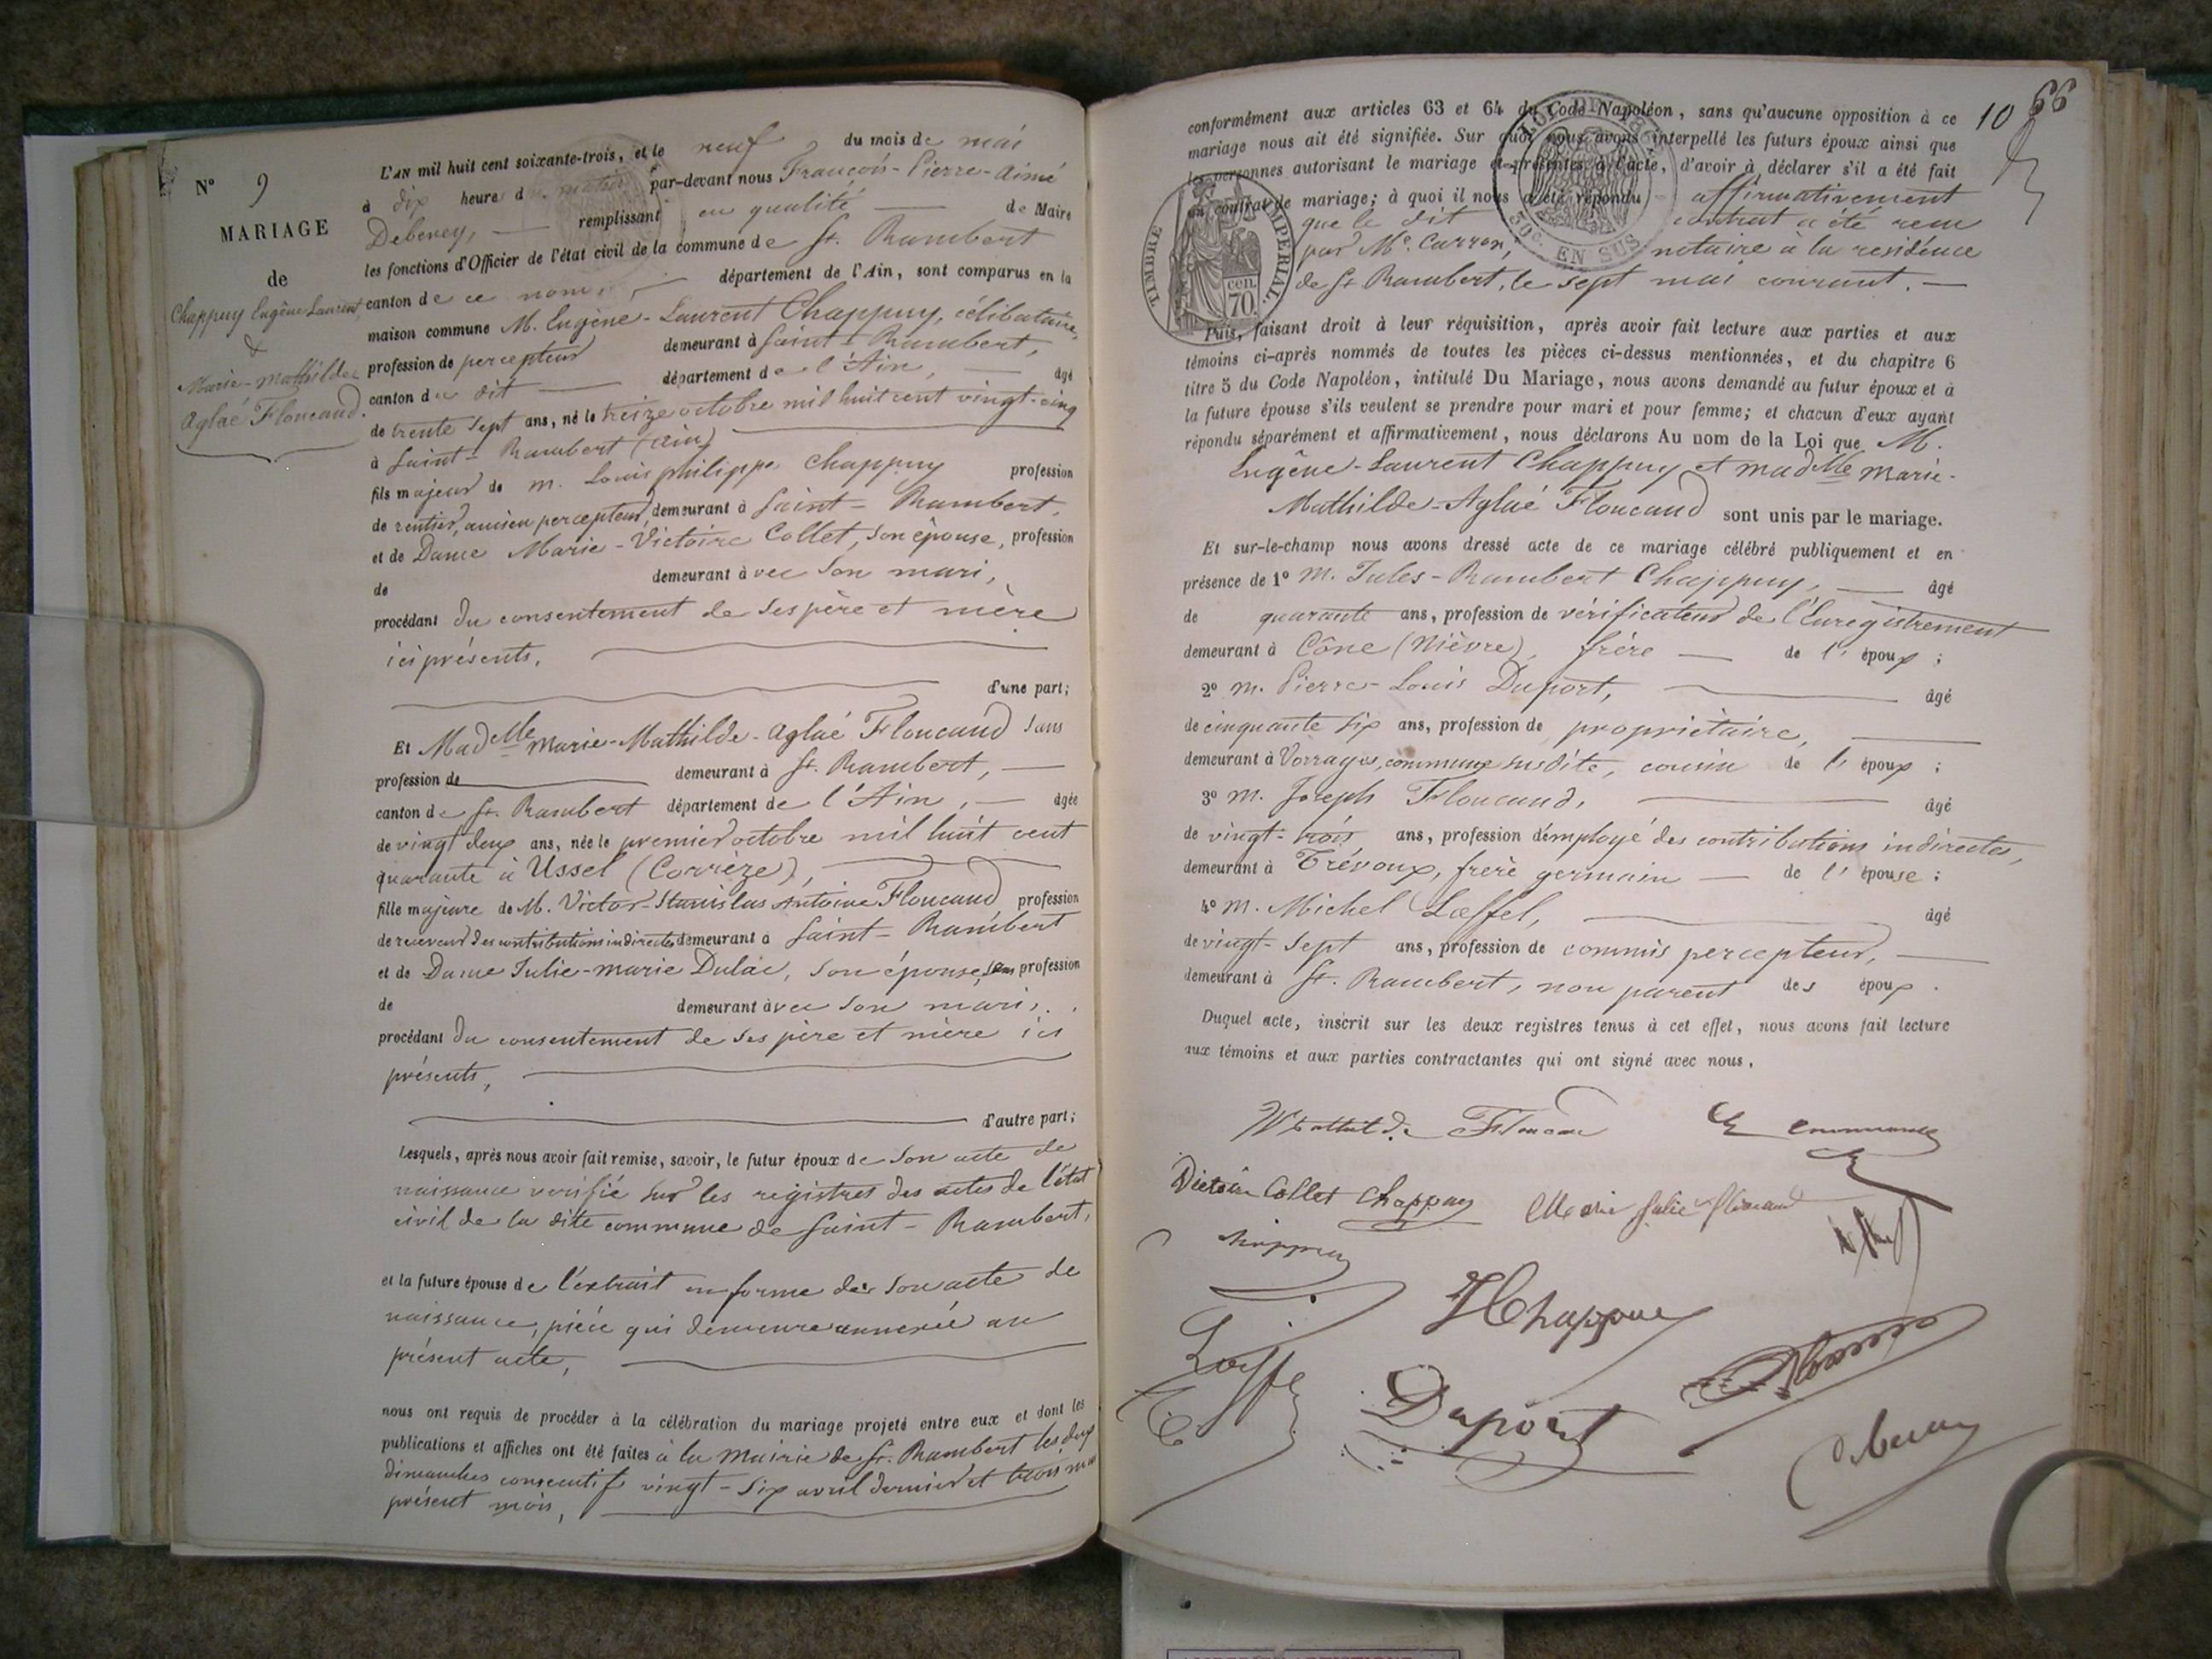 N° 9
MARIAGE
de
Chappuy Eugène Laurent
&
Marie-Mathilde
Aglaé Floucaud.
L'AN mil huit cent soixante-trois, et le neuf du mois de mai
à dix heure du matin par-devant nous François-Pierre-Aimé
Debeney, remplissant en qualité de Maire
les fonctions d'Officier de l'état civil de la commune de St. Rambert
canton de ce nom, département de l'Ain, sont comparus en la
maison commune M. Eugène-Laurent Chappuy, célibataire,
profession de percepteur demeurant à Saint-Rambert,
canton du dit département de l'Ain, âgé
de trente sept ans, né le treize octobre mil huit cent vingt-cinq
à Saint-Rambert (Ain)
fils majeur de M. Louis philippe Chappuy profession
de rentier, ancien percepteur, demeurant à Saint-Rambert,
et de Dame Marie-Victoire Collet, son épouse, profession
de demeurant avec son mari,
procédant du consentement de ses père et mère
ici présents,
d'une part;
Et Madelle Marie-Mathilde-Aglaé Floucaud sans
profession de demeurant à St. Rambert,
canton de St. Rambert département de l'Ain, âgée
de vingt deux ans, née le premier octobre mil huit cent
quarante à Ussel (Corrèze),
fille majeure de M. Victor-Stanislas Antoine Floucaud profession
de receveur des contributions indirectes demeurant à Saint-Rambert
et de Dame Julie-Marie Dulac, son épouse, sans profession
de demeurant avec son mari,
procédant du consentement de ses père et mère ici
présents,
d'autre part;
Lesquels, après nous avoir fait remise, savoir, le futur époux de son acte de
naissance vérifié sur les registres des actes de l'état
civil de la dite commune de Saint-Rambert,
et la future épouse de l'extrait en forme de son acte de
naissance, pièce qui demeure annexée au
présent acte,
nous ont requis de procéder à la célébration du mariage projeté entre eux et dont les
publications et affiches ont été faites à la Mairie de St. Rambert les deux
dimanches consécutifs vingt-six avril dernier et trois mai
présent mois,
10 66
conformément aux articles 63 et 64 du Code Napoléon, sans qu'aucune opposition à ce
mariage nous ait été signifiée. Sur quoi nous avons interpellé les futurs époux ainsi que
les personnes autorisant le mariage et présentes à l'acte, d'avoir à déclarer s'il a été fait
un contrat de mariage; à quoi il nous a été répondu affirmativement
que le dit contrat a été reçu
par Me. Carron, notaire à la résidence
de St Rambert, le sept mai courant.
TIMBRE IMPERIAL
cen.
70
50c. EN SUS
Puis, faisant droit à leur réquisition, après avoir fait lecture aux parties et aux
témoins ci-après nommés de toutes les pièces ci-dessus mentionnées, et du chapitre 6
titre 5 du Code Napoléon, intitulé Du Mariage, nous avons demandé au futur époux et à
la future épouse s'ils veulent se prendre pour mari et pour femme; et chacun d'eux ayant
répondu séparément et affirmativement, nous déclarons Au nom de la Loi que M.
Eugène-Laurent Chappuy et Madelle Marie-
Mathilde-Aglaé Floucaud sont unis par le mariage.
Et sur-le-champ nous avons dressé acte de ce mariage célébré publiquement et en
présence de 1° M. Jules-Rambert Chappuy, âgé
de quarante ans, profession de vérificateur de l'Enregistrement
demeurant à Cône (Nièvre), frère de l'époux;
2° M. Pierre-Louis Duport, âgé
de cinquante six ans, profession de propriétaire,
demeurant à Vorrages, commune susdite, cousin de l'époux;
3° M. Joseph Floucaud, âgé
de vingt-trois ans, profession d'employé des contributions indirectes,
demeurant à Trévoux, frère germain de l'épouse;
4° M. Michel Lœffel, âgé
de vingt-sept ans, profession de commis percepteur,
demeurant à St. Rambert, non parent des époux.
Duquel acte, inscrit sur les deux registres tenus à cet effet, nous avons fait lecture
aux témoins et aux parties contractantes qui ont signé avec nous.
Floucaud
Victoire Collet Chappuy Marie Julie Floucaud
Chappuy
JChappuy
Lœffel
Duport
Debeney